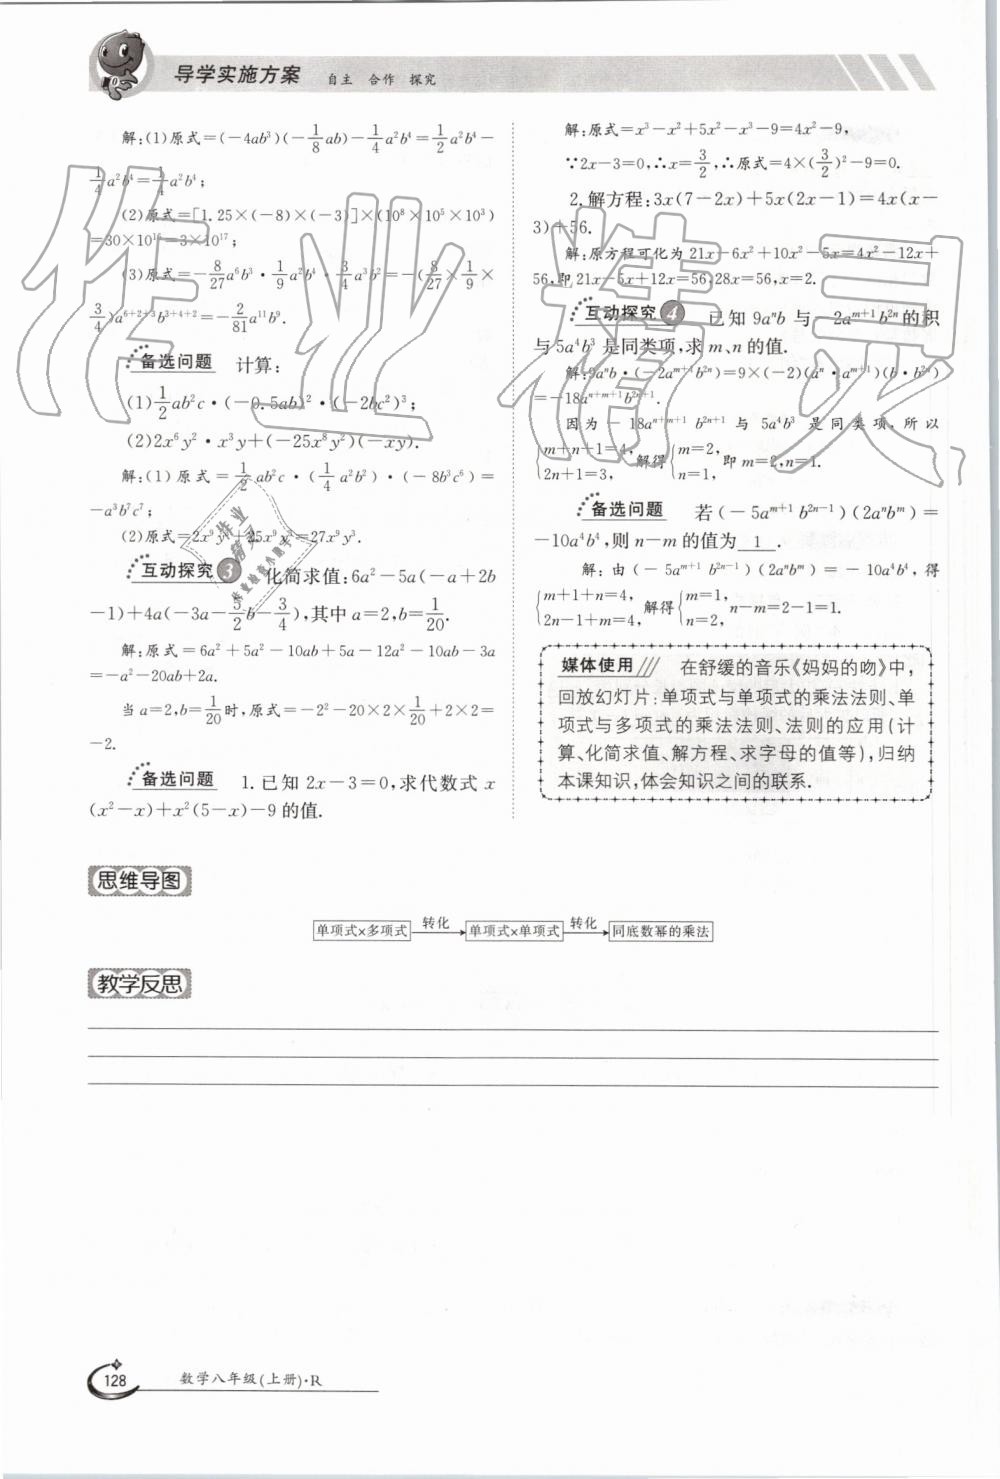 导学实施方案 自主 合作 探究
解:(1)原式=(-4ab³)(-1/8 ab)-1/4 a²b⁴=1/2 a²b⁴-
1/4 a²b⁴=1/4 a²b⁴;
(2)原式=[1.25×(-8)×(-3)]×(10⁸×10⁵×10³)
=30×10¹⁶=3×10¹⁷;
(3)原式=-8/27 a⁶b³·1/9 a²b⁴·3/4 a³b²=-(8/27×1/9×
3/4)a⁶⁺²⁺³b³⁺⁴⁺²=-2/81 a¹¹b⁹.
备选问题 计算:
(1)1/2 ab²c·(-0.5ab)²·(-2bc²)³;
(2)2x⁶y²·x³y+(-25x⁸y²)(-xy).
解:(1)原式=1/2 ab²c·(1/4 a²b²)·(-8b³c⁶)=
-a³b⁷c⁷;
(2)原式=2x⁹y³+25x⁹y³=27x⁹y³.
互动探究 3 化简求值:6a²-5a(-a+2b
-1)+4a(-3a-5/2 b-3/4),其中a=2,b=1/20.
解:原式=6a²+5a²-10ab+5a-12a²-10ab-3a
=-a²-20ab+2a.
当a=2,b=1/20时,原式=-2²-20×2×1/20+2×2=
-2.
备选问题 1.已知2x-3=0,求代数式x
(x²-x)+x²(5-x)-9的值.
解:原式=x³-x²+5x²-x³-9=4x²-9,
∵2x-3=0,∴x=3/2,∴原式=4×(3/2)²-9=0.
2.解方程:3x(7-2x)+5x(2x-1)=4x(x-
3)+56.
解:原方程可化为21x-6x²+10x²-5x=4x²-12x+
56,即21x-5x+12x=56,28x=56,x=2.
互动探究 4 已知9aⁿb与-2aᵐ⁺¹b²ⁿ的积
与5a⁴b³是同类项,求m、n的值.
解:9aⁿb·(-2aᵐ⁺¹b²ⁿ)=9×(-2)(aⁿ·aᵐ⁺¹)(b·b²ⁿ)
=-18aⁿ⁺ᵐ⁺¹b²ⁿ⁺¹.
因为-18aⁿ⁺ᵐ⁺¹b²ⁿ⁺¹与5a⁴b³是同类项,所以
{m+n+1=4, 2n+1=3, 解得{m=2, n=1, 即m=2,n=1.
备选问题 若(-5aᵐ⁺¹b²ⁿ⁻¹)(2aⁿbᵐ)=
-10a⁴b⁴,则n-m的值为 1 .
解:由(-5aᵐ⁺¹b²ⁿ⁻¹)(2aⁿbᵐ)=-10a⁴b⁴,得
{m+1+n=4, 2n-1+m=4, 解得{m=1, n=2, n-m=2-1=1.
媒体使用 在舒缓的音乐《妈妈的吻》中,
回放幻灯片:单项式与单项式的乘法法则、单
项式与多项式的乘法法则、法则的应用(计
算、化简求值、解方程、求字母的值等),归纳
本课知识,体会知识之间的联系.
思维导图
单项式×多项式 转化 单项式×单项式 转化 同底数幂的乘法
教学反思
128 数学八年级(上册)·R
作业精灵